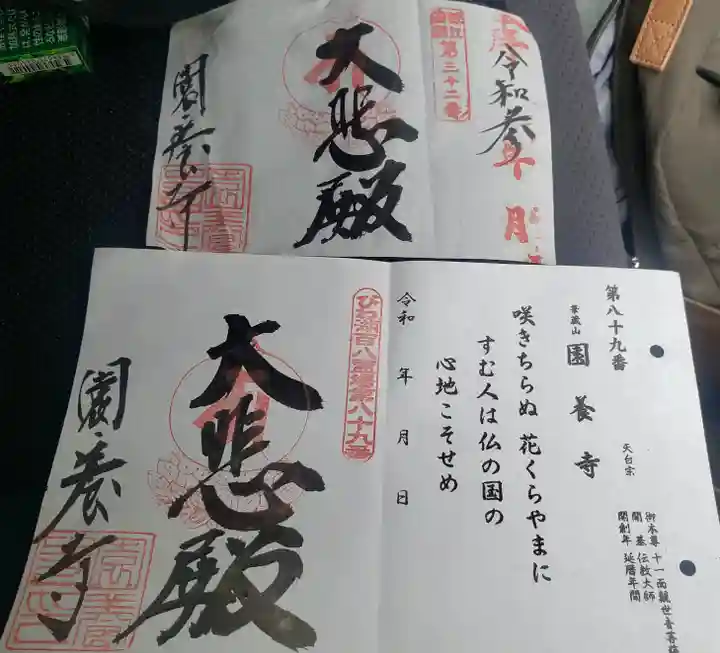 令和参年 月
第三十二番
大悲殿
園養寺
第八十九番
華蔵山
園養寺
天台宗
御本尊 十一面観世音菩薩
開基 伝教大師
開創年 延暦年間
咲きちらぬ 花くらやまに
すむ人は仏の国の
心地こそせめ
令和 年 月 日
びわ湖百八霊場第八十九番
大悲殿
園養寺